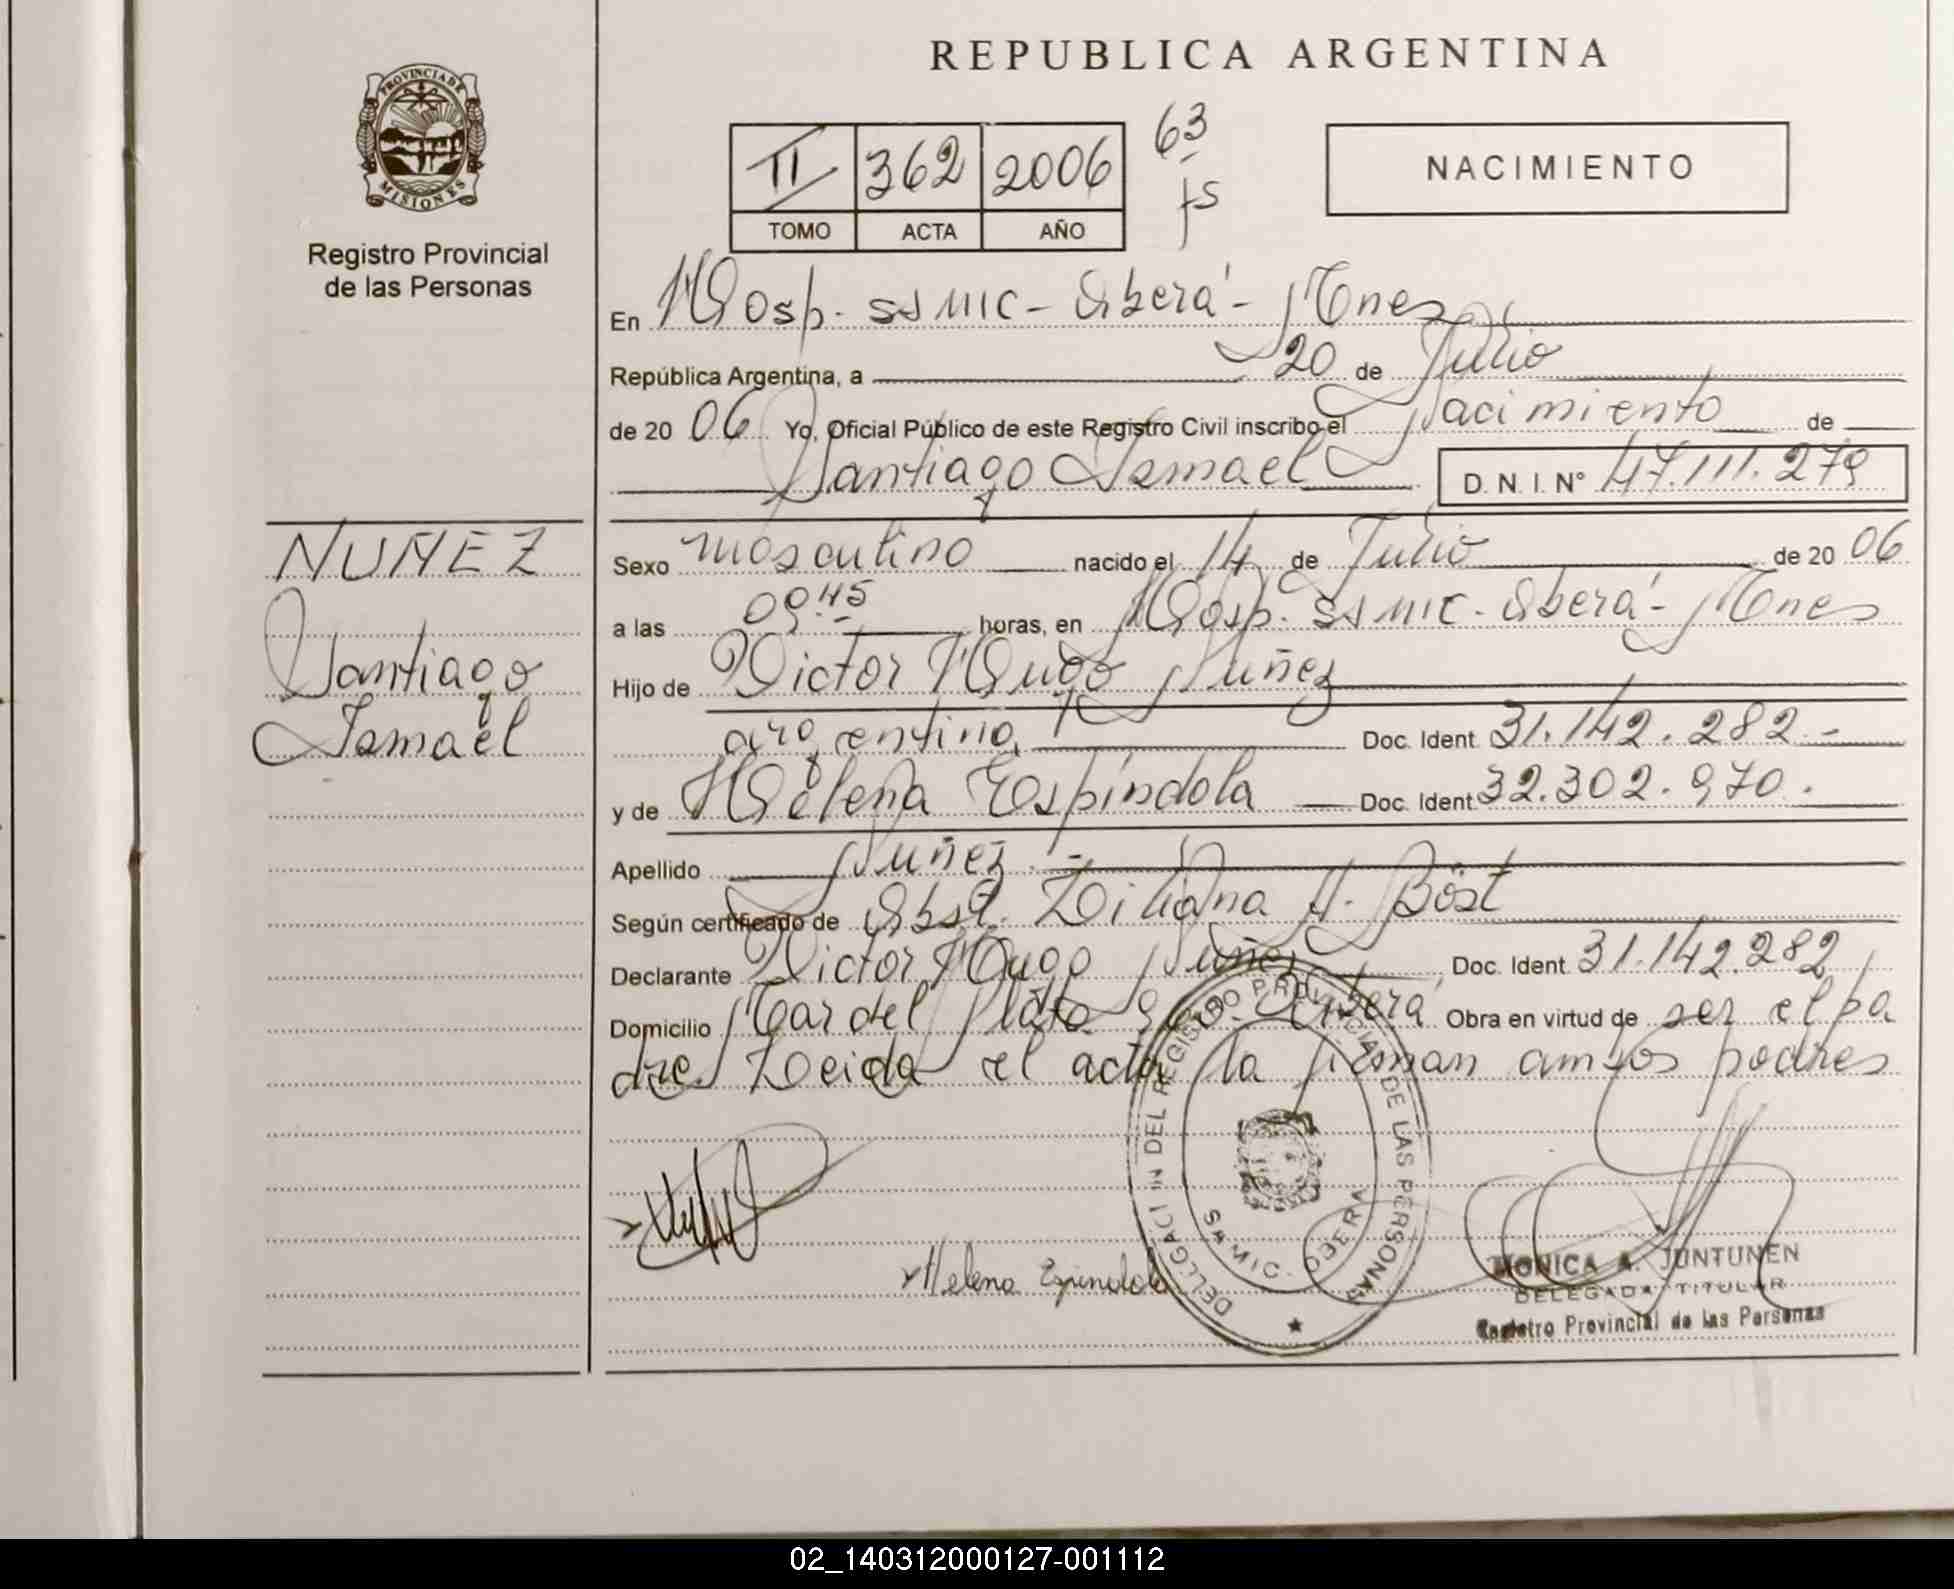 REPUBLICA ARGENTINA
PROVINCIA DE
MISIONES
Registro Provincial
de las Personas
II 362 2006
TOMO ACTA AÑO
63
fs
NACIMIENTO
En Hosp. SAMIC - Oberá - Mnes
República Argentina, a 20 de Julio
de 2006 Yo, Oficial Público de este Registro Civil inscribo el Nacimiento de
Santiago Ismael D. N. I. N° 47.111.279
NUÑEZ
Santiago
Ismael
Sexo masculino nacido el 14 de Julio de 2006
a las 09:45 horas, en Hosp. SAMIC - Oberá - Mnes
Hijo de Victor Hugo Nuñez
argentino Doc. Ident. 31.142.282.-
y de Helena Espindola Doc. Ident. 32.302.970.
Apellido Nuñez.-
Según certificado de Obst. Liliana A. Böst
Declarante Victor Hugo Nuñez Doc. Ident. 31.142.282
Domicilio Mar del Plata 960 - Oberá Obra en virtud de ser el pa
dre. Leida el acta la firman ambos padres
Helena Espindola
DELEGACI N DEL REGISTRO PROVINCIAL DE LAS PERSONAS
SAMIC - OBERA
MONICA A. JUNTUNEN
DELEGADA TITULAR
Registro Provincial de las Personas
02_140312000127-001112